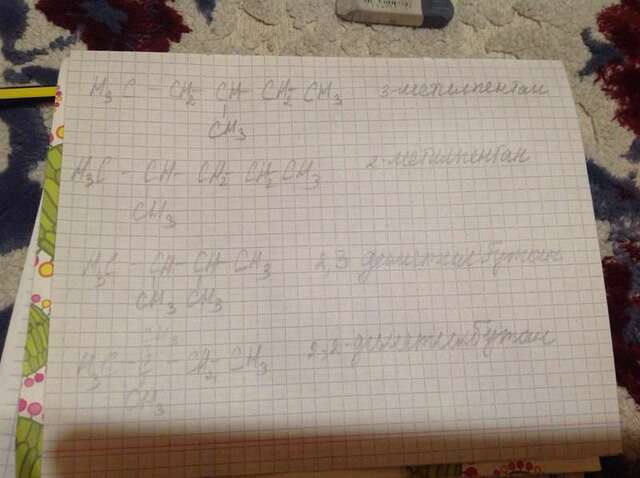 H₃C - CH₂ - CH - CH₂ - CH₃ 3-метилпентан
CH₃
H₃C - CH - CH₂ - CH₂ - CH₃ 2-метилпентан
CH₃
H₃C - CH - CH - CH₃ 2,3-диметилбутан
CH₃ CH₃
CH₃
H₃C - C - CH₂ - CH₃ 2,2-диметилбутан
CH₃